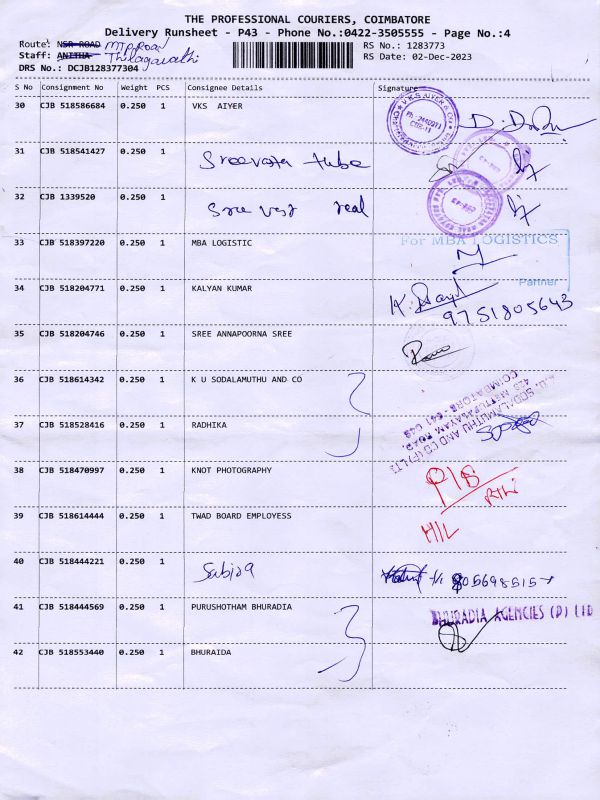 THE PROFESSIONAL COURIERS, COIMBATORE
Delivery Runsheet - P43 - Phone No.:0422-3505555 - Page No.:4
Route: NSR ROAD MTP Road RS No.: 1283773
Staff: ANITHA Thilagavathi RS Date: 02-Dec-2023
DRS No.: DCJB128377304
S No Consignment No Weight PCS Consignee Details Signature
30 CJB 518586684 0.250 1 VKS AIYER
31 CJB 518541427 0.250 1 Sreevatsa tube
32 CJB 1339520 0.250 1 Sree vest real
33 CJB 518397220 0.250 1 MBA LOGISTIC For MBA LOGISTICS
Partner
34 CJB 518204771 0.250 1 KALYAN KUMAR 9751805643
35 CJB 518204746 0.250 1 SREE ANNAPOORNA SREE
36 CJB 518614342 0.250 1 K U SODALAMUTHU AND CO
K.U. SODALAMUTHU AND CO (P) LTD
METTUPALAYAM ROAD,
COIMBATORE - 641 043
37 CJB 518528416 0.250 1 RADHIKA
38 CJB 518470997 0.250 1 KNOT PHOTOGRAPHY P/B
39 CJB 518614444 0.250 1 TWAD BOARD EMPLOYESS H/L
40 CJB 518444221 0.250 1 Sabira
41 CJB 518444569 0.250 1 PURUSHOTHAM BHURADIA BHURADIA AGENCIES (P) LTD
42 CJB 518553440 0.250 1 BHURAIDA